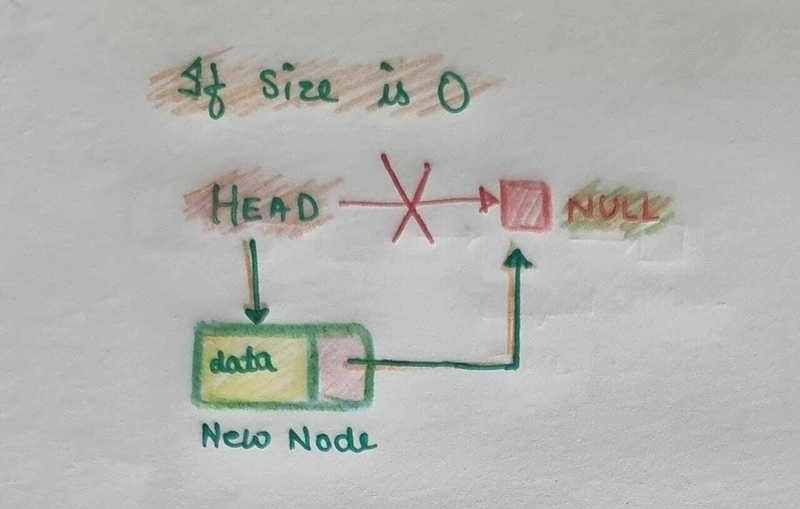 If size is 0
HEAD NULL
data
New Node